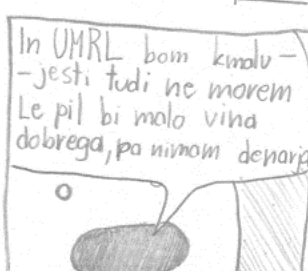 In UMRL bom kmalu -
- jesti tudi ne morem
Le pil bi malo vina
dobrega, pa nimam denarja